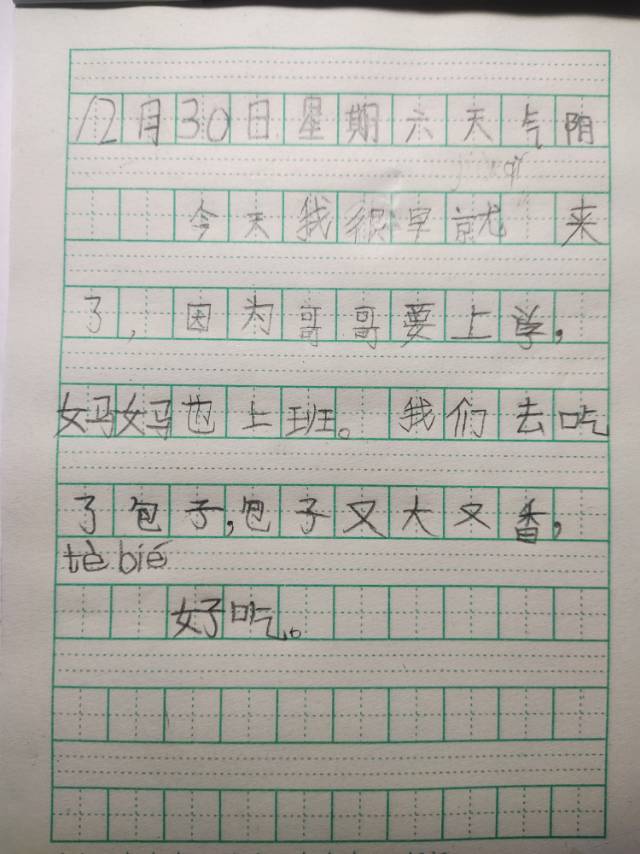 12月30日星期六天气阴
今天我很早就 来
了,因为哥哥要上学,
妈妈也上班。我们去吃
了包子,包子又大又香,
tè bié
好吃。